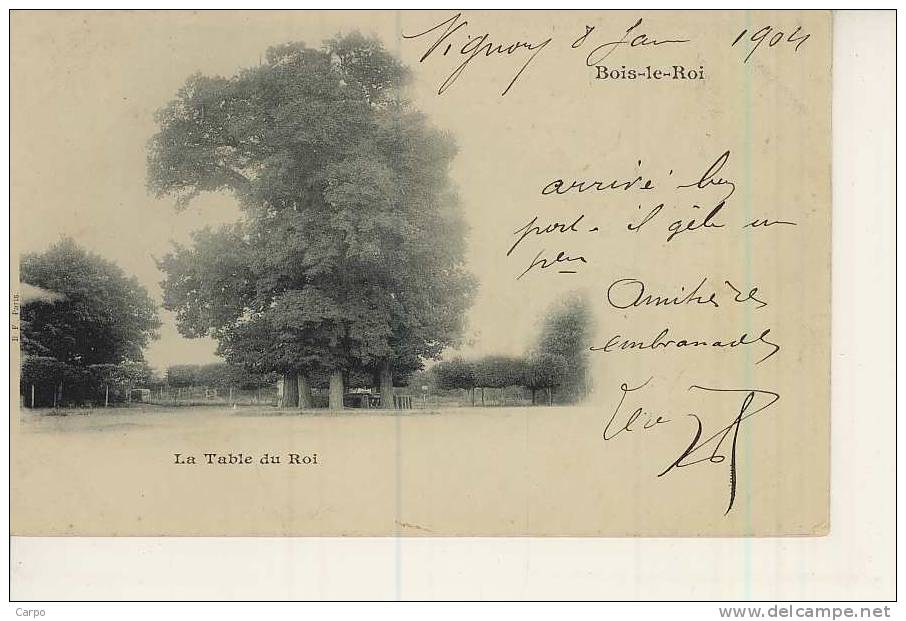 Vignory 8 Jan 1904
Bois-le-Roi
arrivé bon
port. il gèle un
peu
Amitiés
embrassades
D F Paris
La Table du Roi
Carpo
www.delcampe.net